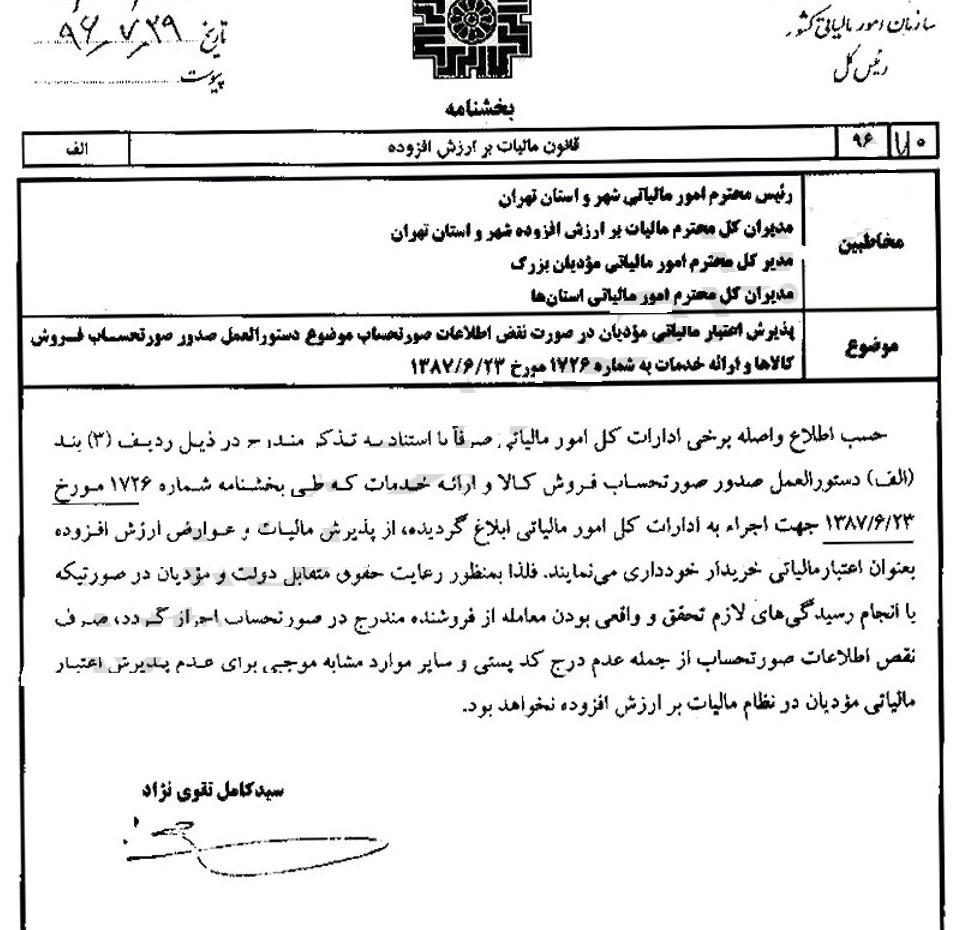 سازمان امور مالیاتی کشور
رئیس کل
تاریخ ۹۶/۷/۲۹
پیوست
بخشنامه
۹۶ قانون مالیات بر ارزش افزوده الف
مخاطبین
رئیس محترم امور مالیاتی شهر و استان تهران
مدیران کل محترم مالیات بر ارزش افزوده شهر و استان تهران
مدیر کل محترم امور مالیاتی مؤدیان بزرگ
مدیران کل محترم امور مالیاتی استان‌ها
موضوع
پذیرش اعتبار مالیاتی مؤدیان در صورت نقص اطلاعات صورتحساب موضوع دستورالعمل صدور صورتحساب فروش
کالاها و ارائه خدمات به شماره ۱۷۲۶ مورخ ۱۳۸۷/۶/۲۳
حسب اطلاع واصله برخی ادارات کل امور مالیاتی صرفاً با استناد به تذکر مندرج در ذیل ردیف (۳) بند
(الف) دستورالعمل صدور صورتحساب فروش کالا و ارائه خدمات که طی بخشنامه شماره ۱۷۲۶ مورخ
۱۳۸۷/۶/۲۳ جهت اجراء به ادارات کل امور مالیاتی ابلاغ گردیده، از پذیرش مالیات و عوارض ارزش افزوده
بعنوان اعتبار مالیاتی خریدار خودداری می‌نمایند. فلذا بمنظور رعایت حقوق متقابل دولت و مؤدیان در صورتیکه
با انجام رسیدگی‌های لازم تحقق و واقعی بودن معامله از فروشنده مندرج در صورتحساب احراز گردد، صرف
نقص اطلاعات صورتحساب از جمله عدم درج کد پستی و سایر موارد مشابه موجبی برای عدم پذیرش اعتبار
مالیاتی مؤدیان در نظام مالیات بر ارزش افزوده نخواهد بود.
سید کامل تقوی نژاد